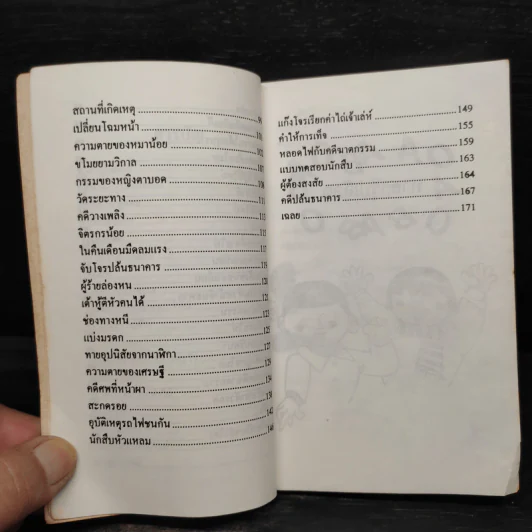 สถานที่เกิดเหตุ
เปลี่ยนโฉมหน้า
ความตายของหมาน้อย
ขโมยยามวิกาล
กรรมของหญิงตาบอด
วัดระยะทาง
คดีวางเพลิง
จิตรกรน้อย
ในคืนเดือนมืดลมแรง
จับโจรปล้นธนาคาร
ผู้ร้ายล่องหน
เต้าหู้ตีหัวคนได้
ช่องทางหนี
แบ่งมรดก
ทายอุปนิสัยจากนาฬิกา
ความตายของเศรษฐี
คดีศพที่หน้าผา
สะกดรอย
อุบัติเหตุรถไฟชนกัน
นักสืบหัวแหลม
แก๊งโจรเรียกค่าไถ่เจ้าเล่ห์ 149
คำให้การเท็จ 155
หลอดไฟกับคดีฆาตกรรม 159
แบบทดสอบนักสืบ 163
ผู้ต้องสงสัย 164
คดีปล้นธนาคาร 167
เฉลย 171